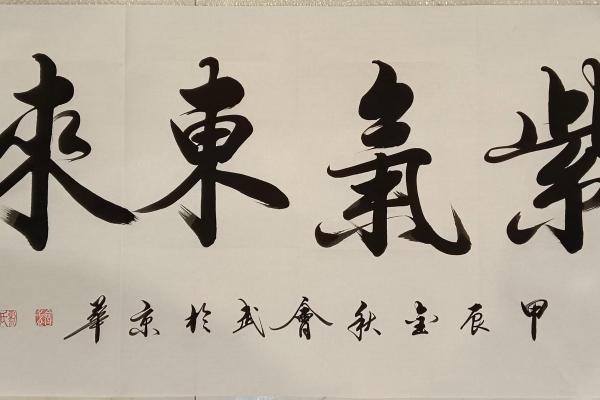 紫氣東來
甲辰金秋會武於京華